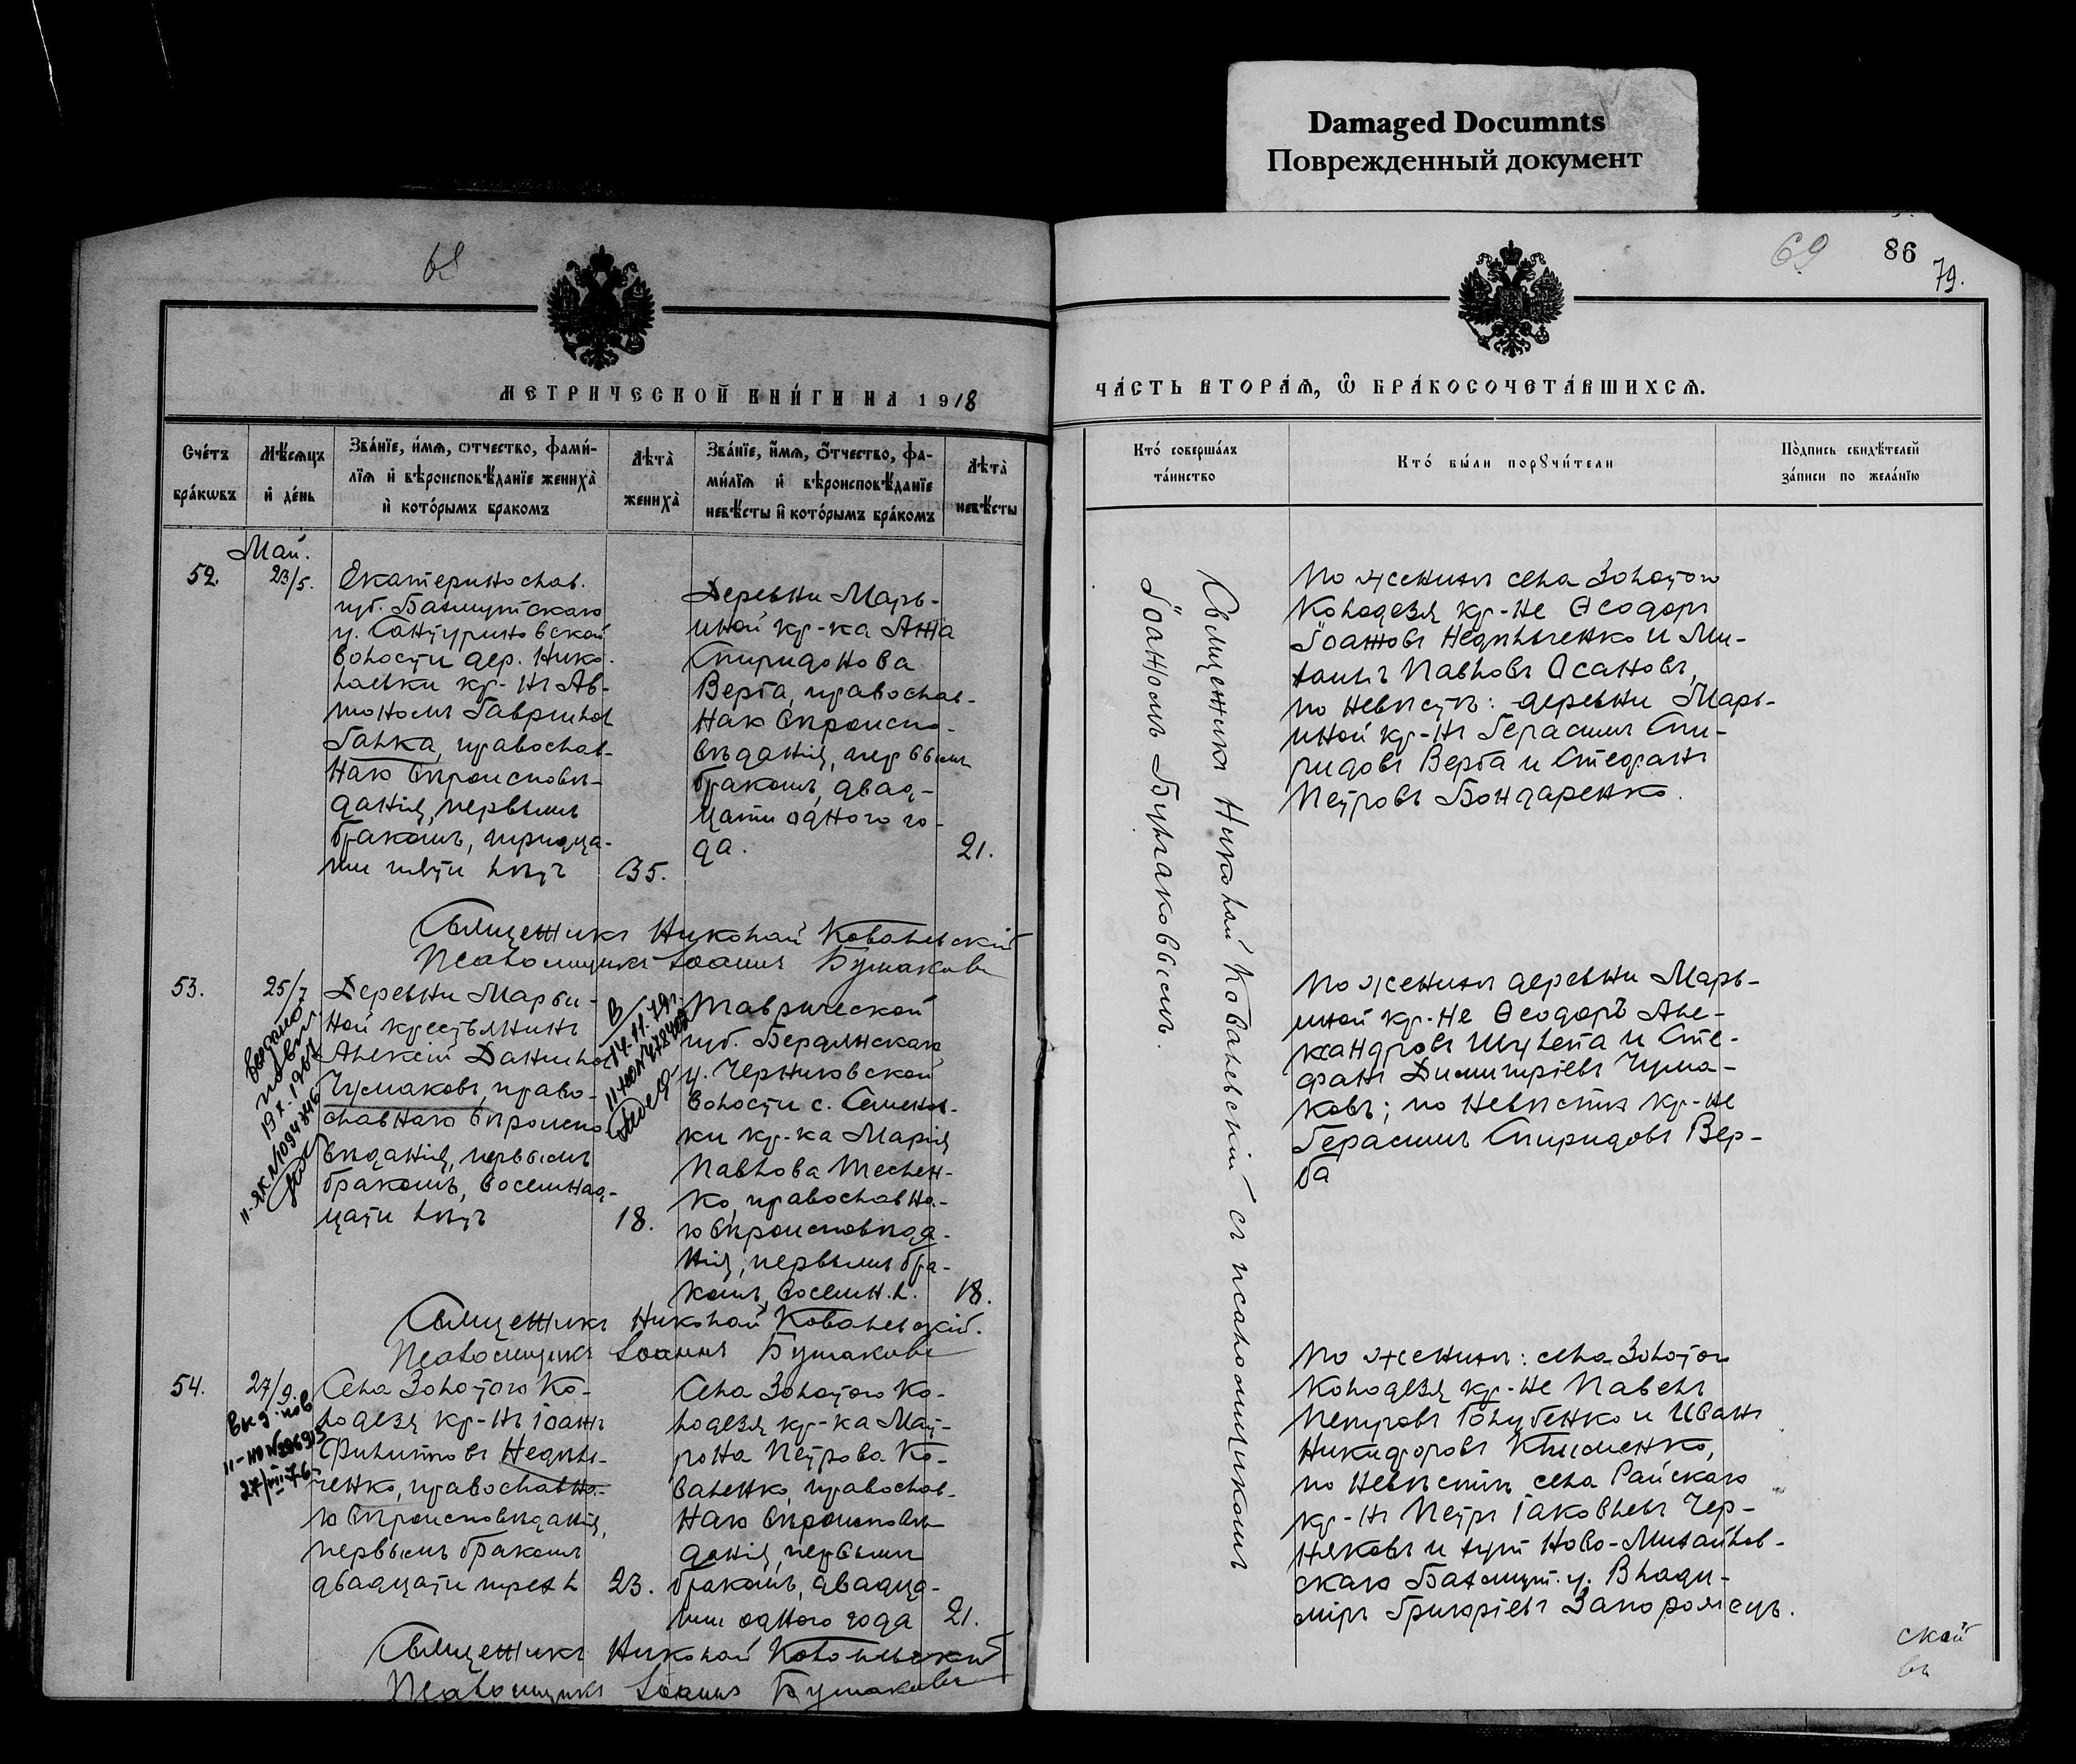 Damaged Documnts
Поврежденный документ
68
МЕТРИЧЕСКОЙ КНИ́ГИ НА 1918
Сче́тъ бра́кωвъ
Мѣ́сѧцъ и́ де́нь
Зва́нїе, и́мѧ, ѻтчество, фами́-
лїѧ и́ вѣроисповѣ́данїе жениха̀
и҆ кото́рымъ бракомъ
Лѣта̀
жениха̀
Зва́нїе, и҆мѧ, ѻ҆тчество, фа-
ми́лїѧ и҆ вѣроисповѣ́данїе
невѣ́сты и҆ кото́рымъ бра́комъ
Лѣта̀
невѣ́сты
Май.
52.
23/5.
Екатеринослав.
губ. Бахмутскаго
у. Сантуриновской
волости дер. Нико-
лаевки кр-нъ Ав-
тономъ Гавриилов
Галка, православ-
наго вѣроисповѣ-
данія, первымъ
бракомъ, тридца-
ти пяти лѣтъ
35.
Деревни Марь-
иной кр-ка Анна
Спиридонова
Верба, православ-
наго вѣроиспо-
вѣданія, первымъ
бракомъ, двад-
цати одного го-
да.
21.
Священникъ Николай Ковалевскій
Псаломщикъ Іоаннъ Булаковъ
53.
25/7
Деревни Марьи-
ной крестьянинъ
Алексій Даниилов
Чумаковъ, право-
славнаго вѣроиспо-
вѣданія, первымъ
бракомъ, восемнад-
цати лѣтъ
18.
Таврической
губ. Бердянскаго
у. Черниговской
волости с. Семенов-
ки кр-ка Марія
Павлова Теслен-
ко, православна-
го вѣроисповѣда-
нія, первымъ бра-
комъ, восемн. л.
18.
Священникъ Николай Ковалевскій.
Псаломщикъ Іоаннъ Булаковъ
54.
27/9.
Села Золотого Ко-
лодезя кр-нъ Іоаннъ
Филипповъ Недиль-
ченко, православна-
го вѣроисповѣданія,
первымъ бракомъ
двадцати трех л
23.
Села Золотого Ко-
лодезя кр-ка Мат-
рона Петрова Ко-
валенко, православ-
наго вѣроисповѣ-
данія, первымъ
бракомъ, двадца-
ти одного года
21.
Священникъ Николай Ковалевскій
Псаломщикъ Іоаннъ Булаковъ
69
86
79.
ЧА́СТЬ ВТОРА́Ѧ, Ѡ҆ БРА́КОСОЧЕТА́ВШИХСѦ.
Кто́ соверша́лъ
та́инство
Кто́ бы́ли порꙋчи́тели
По́дпись свидѣ́телей
за́писи по жела́нїю
Священникъ Николай Ковалевскій съ псаломщикомъ
Іоанномъ Булаковымъ.
По женихѣ села Золотого
Колодезя кр-не Ѳеодоръ
Іоанновъ Недильченко и Ми-
хаилъ Павловъ Осановъ,
по невѣстѣ: деревни Марь-
иной кр-нъ Герасимъ Спи-
ридовъ Верба и Стефанъ
Петровъ Бондаренко.
По женихѣ деревни Марь-
иной кр-не Ѳеодоръ Але-
ксандровъ Шулепа и Сте-
фанъ Димитріевъ Чума-
ковъ; по невѣстѣ кр-не
Герасимъ Спиридовъ Вер-
ба
По женихѣ: села Золотого
Колодезя кр-не Павелъ
Петровъ Голубенко и Иванъ
Никифоровъ Клименко,
по невѣстѣ села Райскаго
кр-нъ Петръ Іаковлевъ Чер-
няковъ и хут Ново-Михайлов-
скаго Бахмут. у. Влади-
міръ Григоріевъ Запорожецъ.
ской
въ